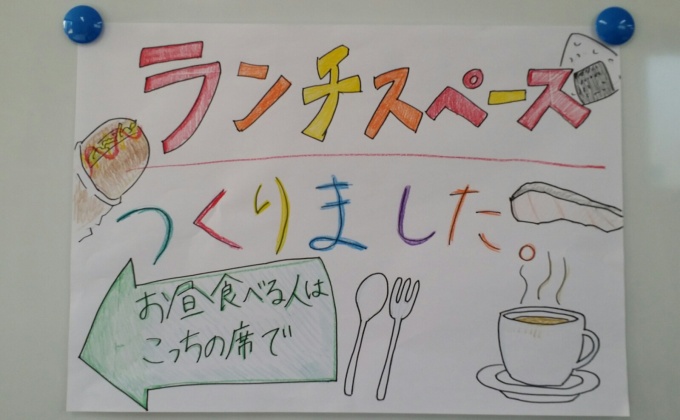 ランチスペース
つくりました。
お昼食べる人は
こっちの席で